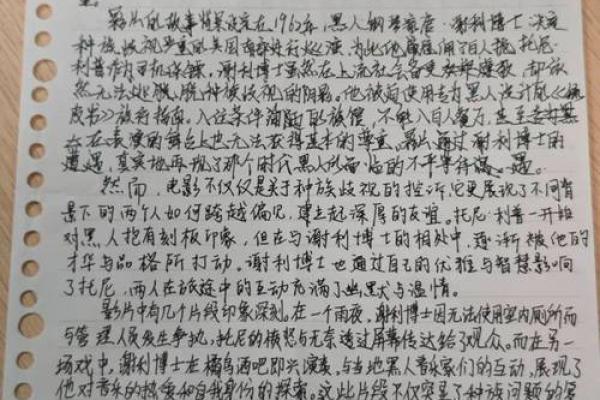 影片的故事背景设定在1962年,黑人钢琴家唐·谢利博士决定
种族歧视严重的美国南部进行巡演,为此他雇佣了白人托尼·
利普作为司机保镖。谢利博士虽然在上流社会备受欢迎,却依
然无法摆脱种族歧视的阴影。他被迫使用专为黑人设计的《绿
皮书》旅行指南。入住条件简陋的旅馆,不能入白人餐馆,甚至
在表演的舞台上也无法获得基本的尊重。影片通过谢利博士的
遭遇,真实地再现了那个时代黑人所面临的不平等待遇。
然而,电影不仅仅是关于种族歧视的控诉,它更展现了不同背
景下的两个人如何跨越偏见,建立起深厚的友谊。托尼·利普一开始
对黑人抱有刻板印象,但在与谢利博士的相处中,逐渐被他的
才华与品格所打动。谢利博士也通过自己的优雅与智慧影响
了托尼,两人在旅途中的互动充满了幽默与温情。
影片中有几个片段印象深刻。在一个雨夜,谢利博士因无法使用室内厕所而
与管理人员发生争执,托尼的愤怒与无奈透过屏幕传达给了观众。而在另一
场戏中,谢利博士在橘鸟酒吧即兴演奏,与当地黑人音乐家们的互动,展现了
他对音乐的热爱和自我身份的探索。这些片段不仅突显了种族问题的复